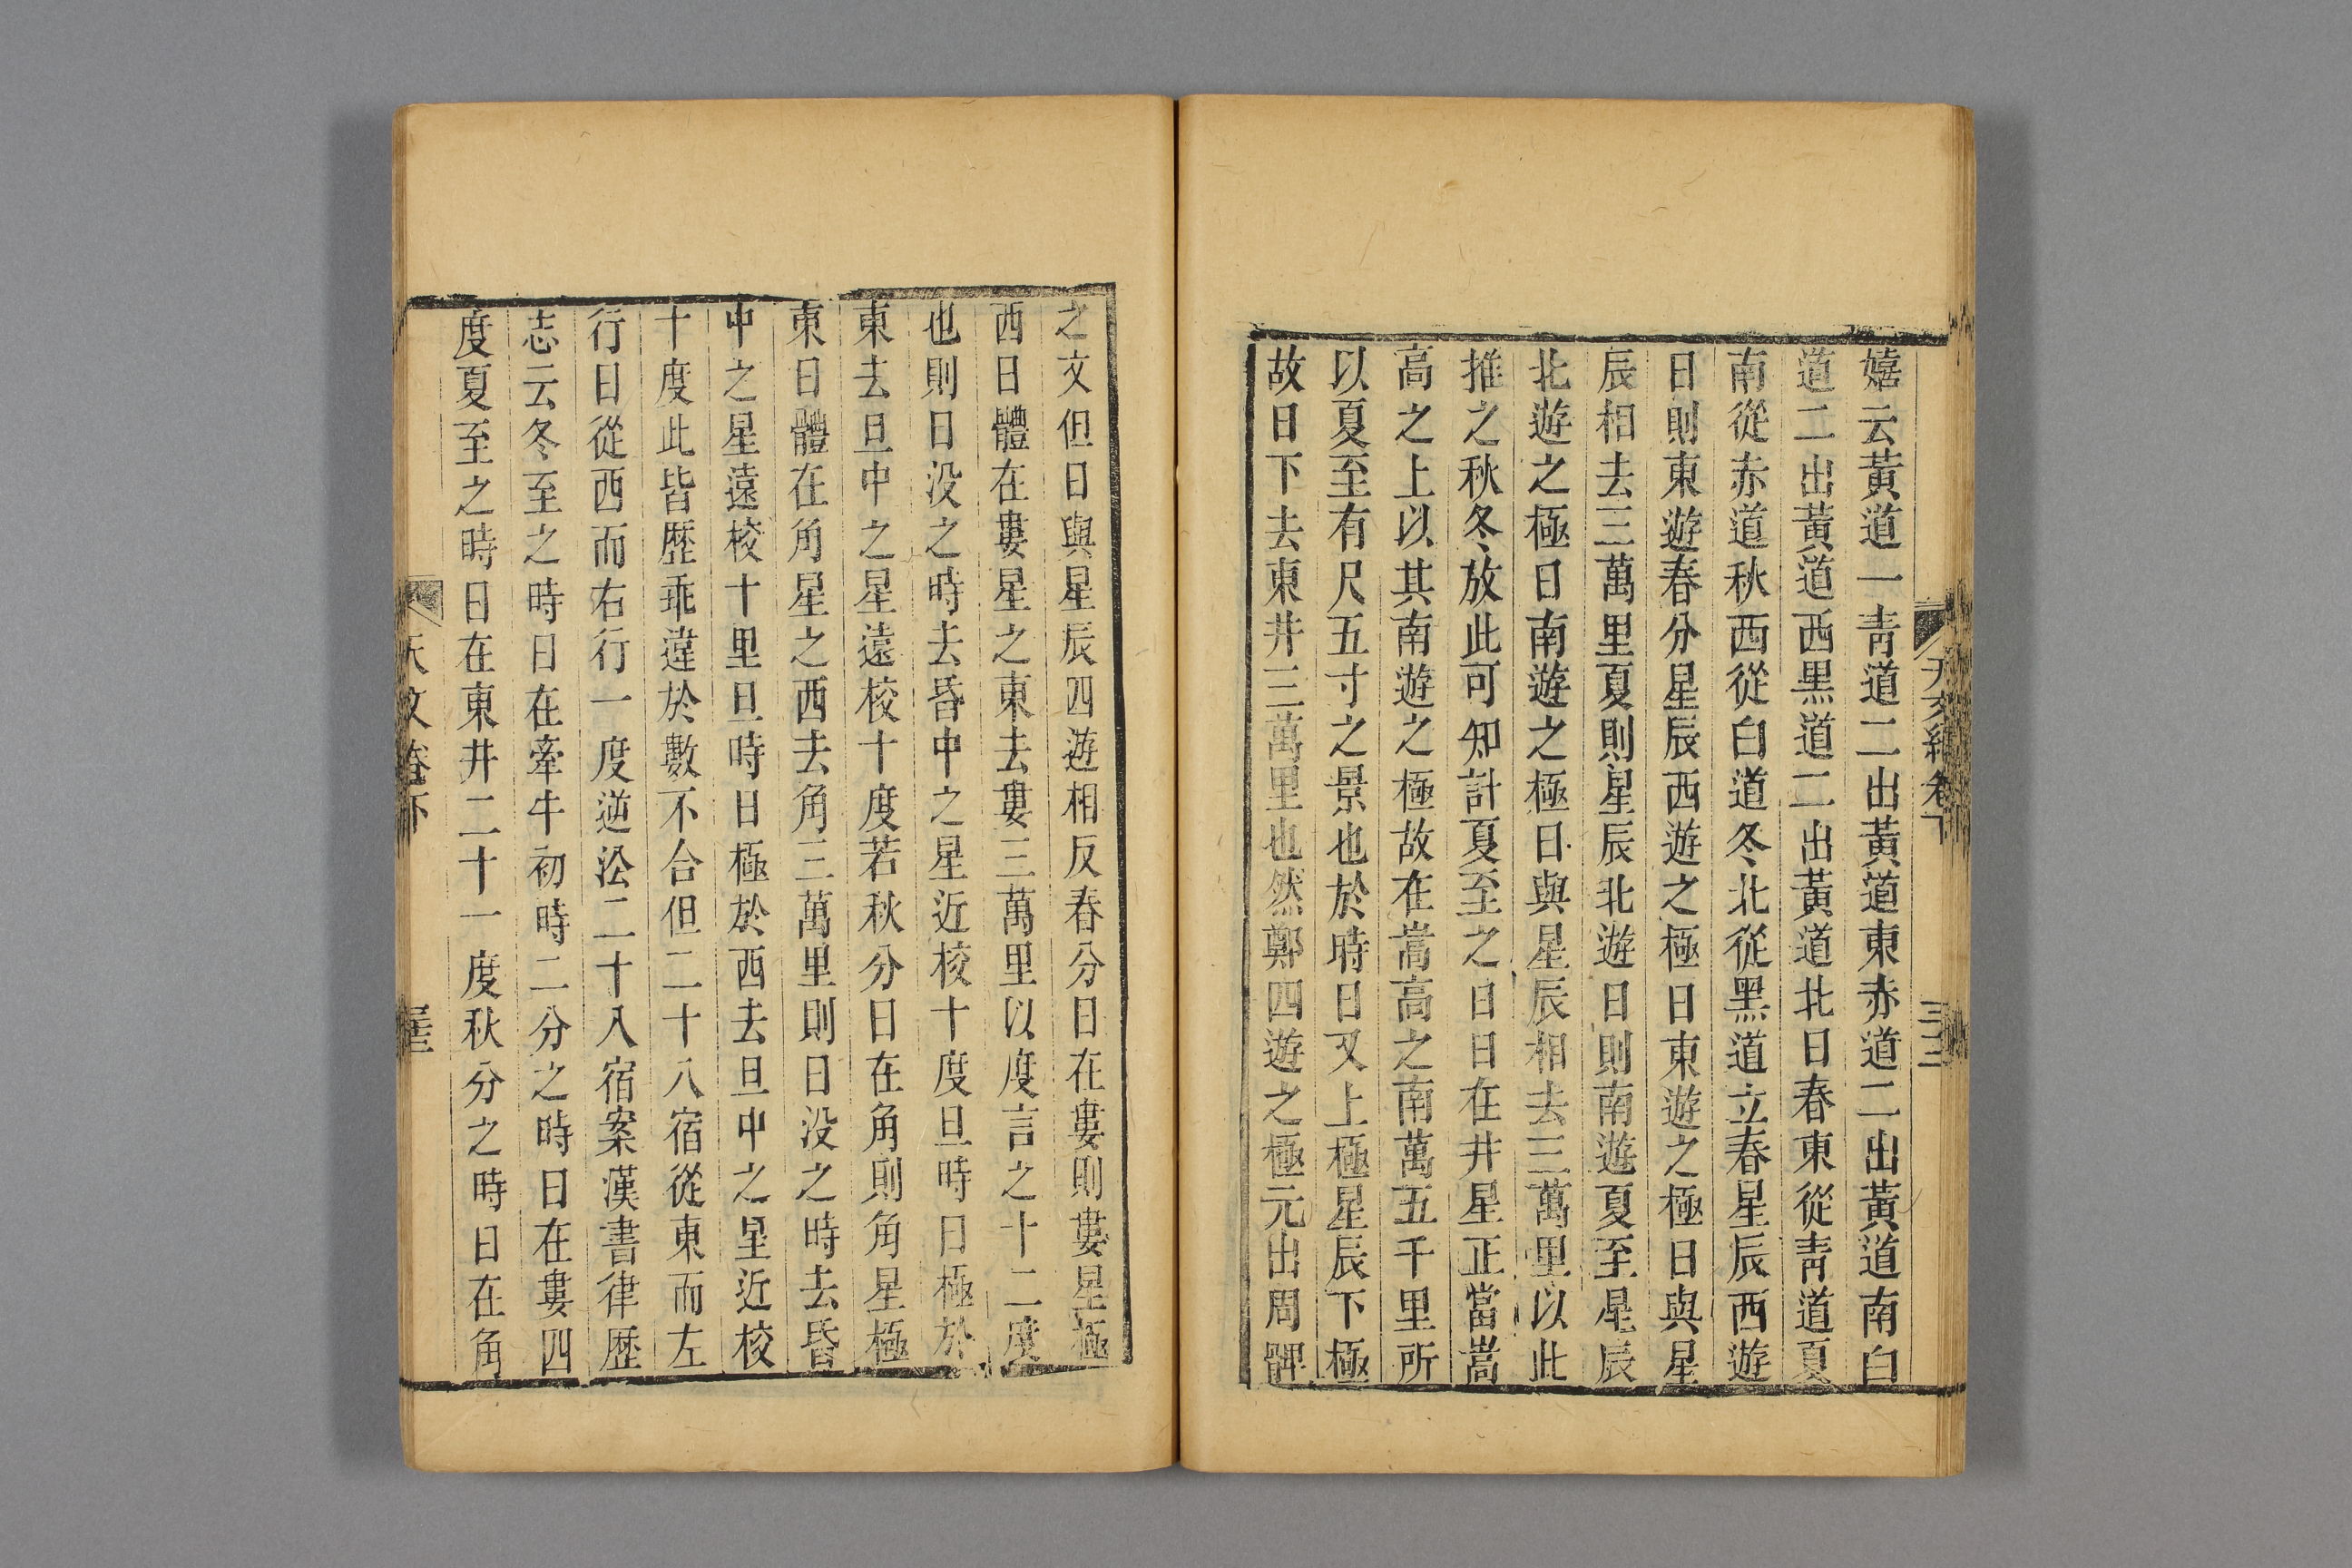 嬉云黃道一青道二出黃道東赤道二出黃道南白
道二出黃道西黑道二出黃道北日春東從青道夏
南從赤道秋西從白道冬北從黑道立春星辰西遊
日則東遊春分星辰西遊之極日東遊之極日與星
辰相去三萬里夏則星辰北遊日則南遊夏至星辰
北遊之極日南遊之極日與星辰相去三萬里以此
推之秋冬放此可知計夏至之日日在井星正當嵩
高之上以其南遊之極故在嵩高之南萬五千里所
以夏至有尺五寸之景也於時日又上極星辰下極
故日下去東井三萬里也然鄭四遊之極元出周髀
之文但日與星辰四遊相反春分日在婁則婁星極
西日體在婁星之東去婁三萬里以度言之十二度
也則日没之時去昏中之星近校十度旦時日極於
東去旦中之星遠校十度若秋分日在角則角星極
東日體在角星之西去角三萬里則日没之時去昏
中之星遠校十里旦時日極於西去旦中之星近校
十度此皆歴乖違於數不合但二十八宿從東而左
行日從西而右行一度逆㳂二十八宿案漢書律歴
志云冬至之時日在牽牛初時二分之時日在婁四
度夏至之時日在東井二十一度秋分之時日在角
天文卷下